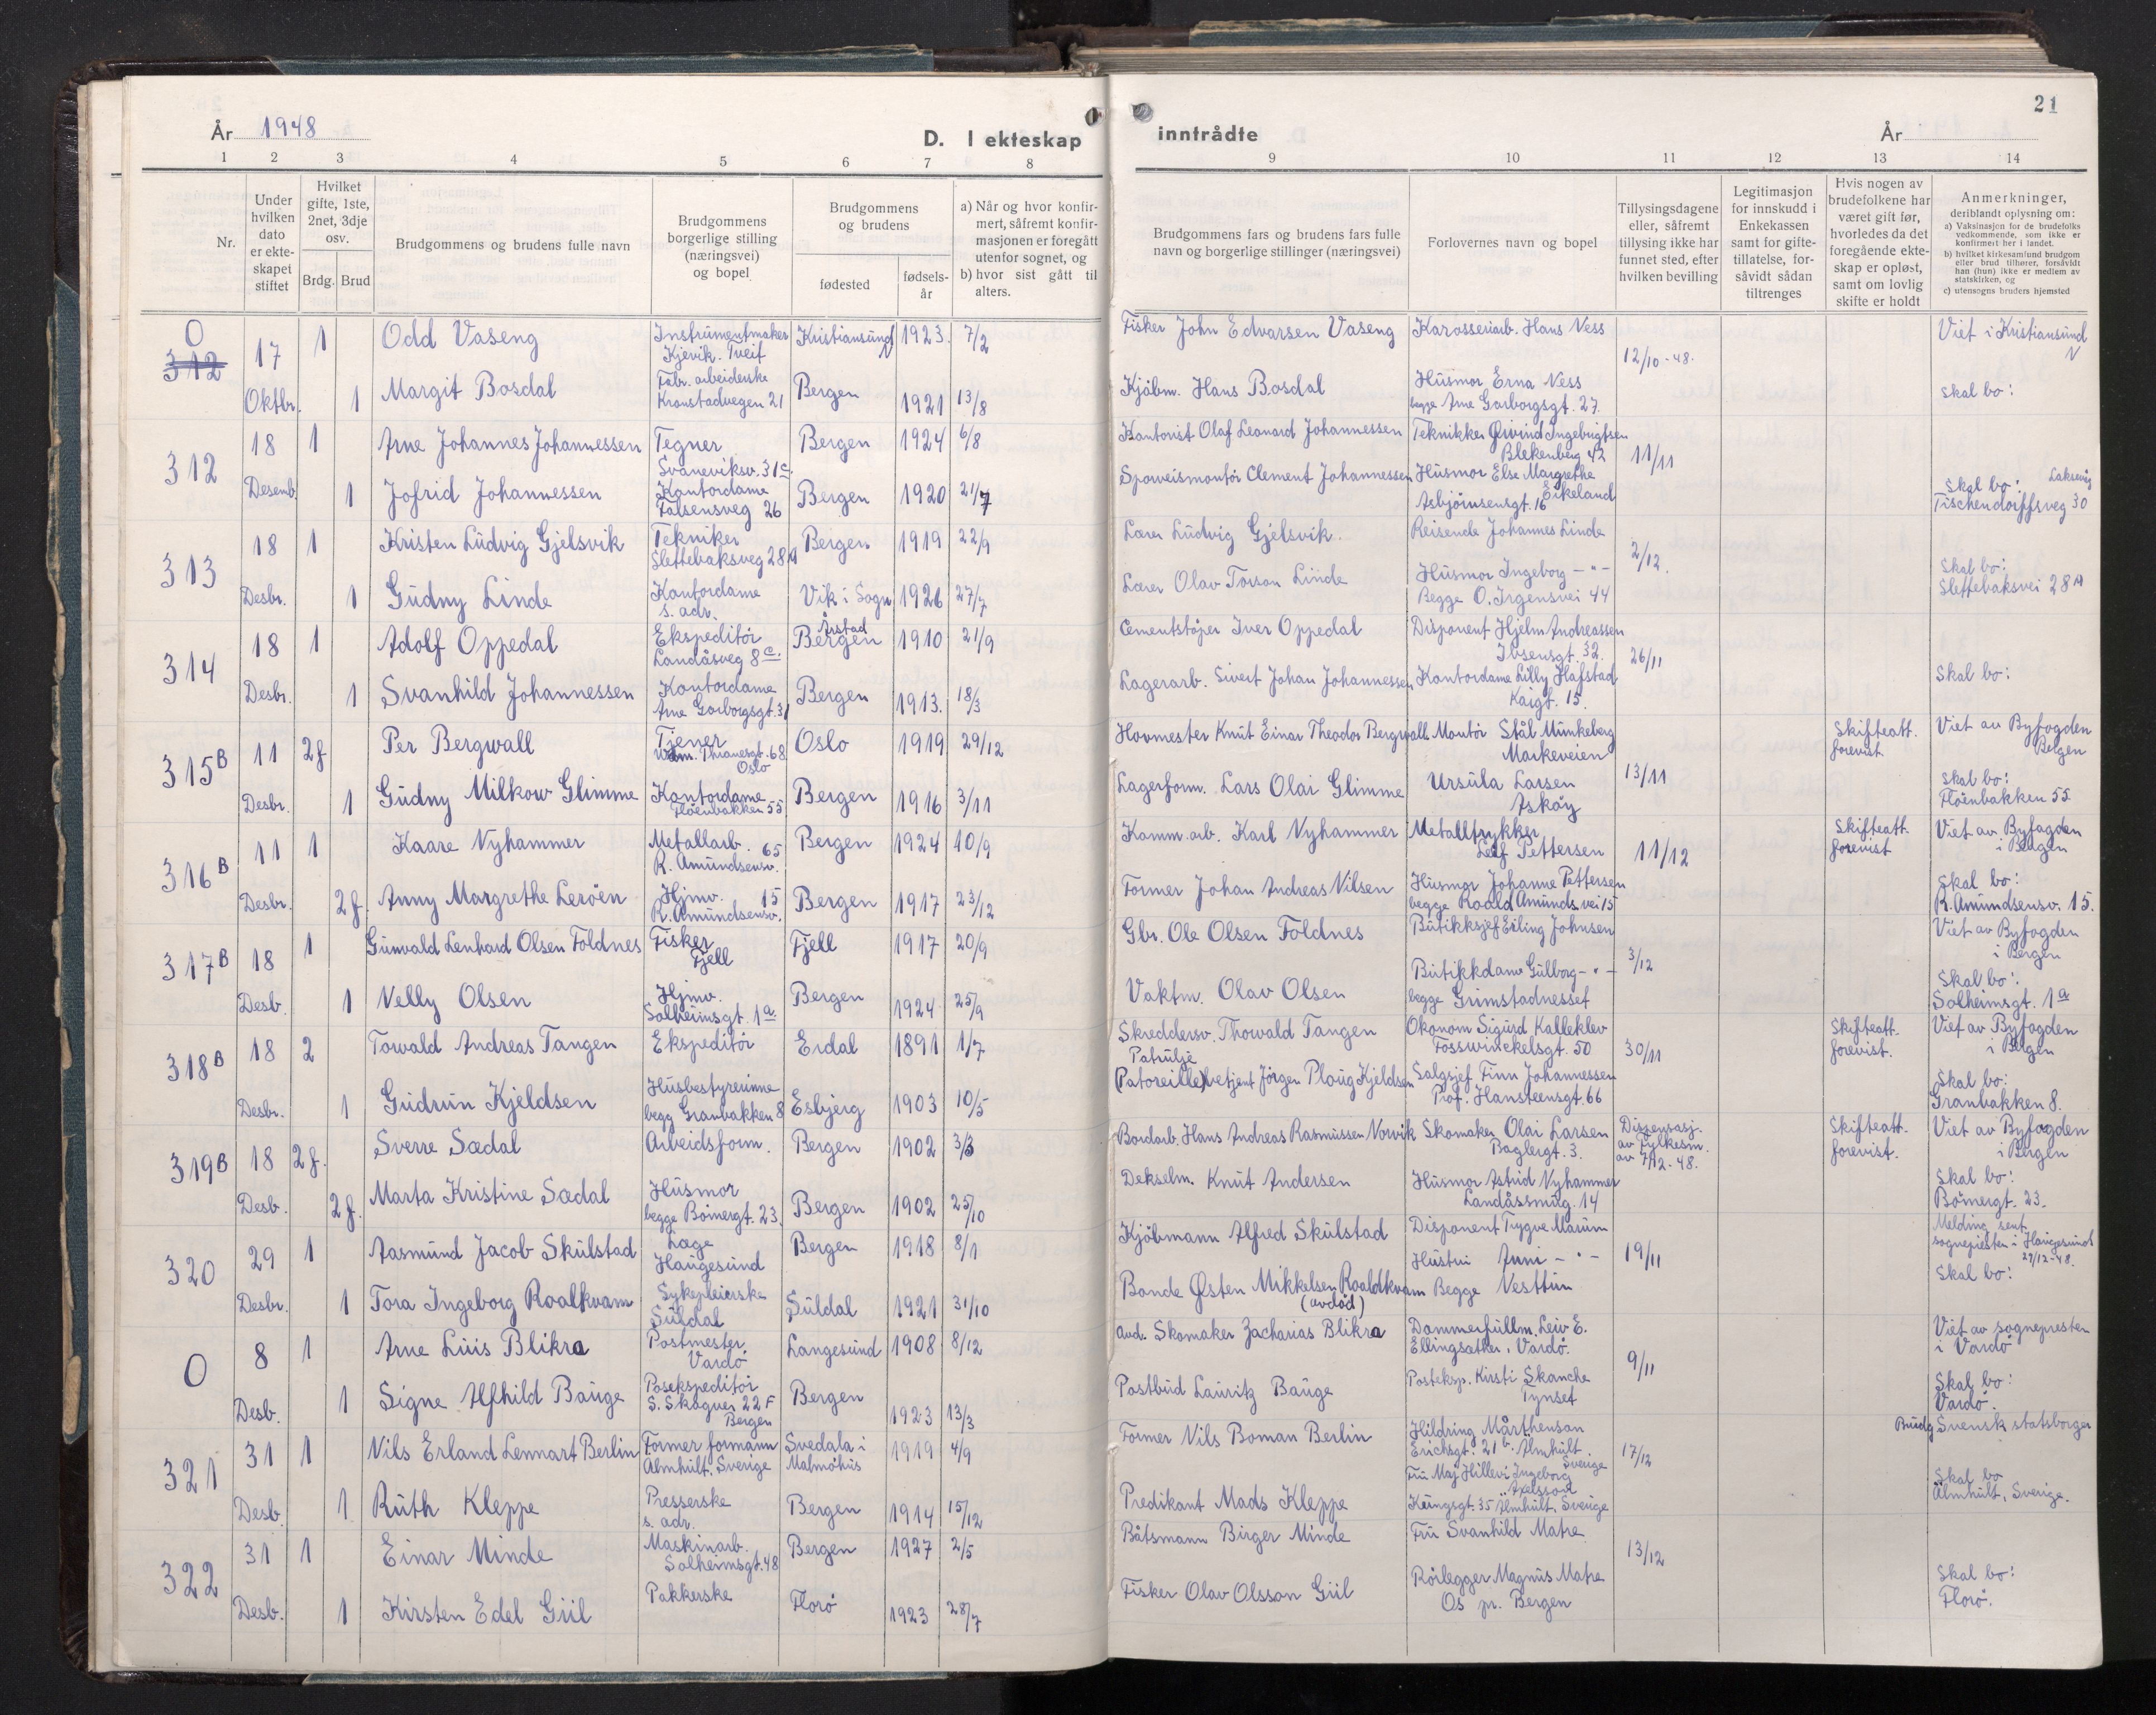 År 1948
D. I ekteskap
1 2 3 4 5 6 7 8
Nr.
Under hvilken dato er ekteskapet stiftet
Hvilket gifte, 1ste, 2net, 3dje osv.
Brdg. Brud
Brudgommens og brudens fulle navn
Brudgommens borgerlige stilling (næringsvei) og bopel
Brudgommens og brudens
fødested
fødsels-år
a) Når og hvor konfirmert, såfremt konfirmasjonen er foregått utenfor sognet, og
b) hvor sist gått til alters.
inntrådte
År
21
9 10 11 12 13 14
Brudgommens fars og brudens fars fulle navn og borgerlige stillinger (næringsvei)
Forlovernes navn og bopel
Tillysingsdagene eller, såfremt tillysing ikke har funnet sted, efter hvilken bevilling
Legitimasjon for innskudd i Enkekassen samt for giftetillatelse, forsåvidt sådan tiltrenges
Hvis nogen av brudefolkene har været gift før, hvorledes da det foregående ekteskap er opløst, samt om lovlig skifte er holdt
Anmerkninger, deriblandt oplysning om:
a) Vaksinasjon for de brudefolks vedkommende, som ikke er konfirmert her i landet.
b) hvilket kirkesamfund brudgom eller brud tilhører, forsåvidt han (hun) ikke er medlem av statskirken, og
c) utensogns bruders hjemsted
0 312 17 Oktbr. 1 Odd Vaseng Instrumentmaker Kjevik. Tveit Kristiansund N 1923. 7/2 Fisker John Edvarsen Vaseng Karosseriarb. Hans Ness 12/10-48. Viet i Kristiansund N
1 Margit Bosdal Fabr. arbeiderske Kronstadvegen 21 Bergen 1921 13/8 Kjöbm. Hans Bosdal Husmor Erna Ness begge Arne Garborgsgt. 27. Skal bo:
312 18 Desemb. 1 Arne Johannes Johannessen Tegner Svaneviksv. 31c. Bergen 1924 6/8 Kontorist Olaf Leonard Johannessen Tekniker Øivind Ingebrigtsen Blekenberg 42 11/11
1 Jofrid Johannessen Kontordame Falsensveg 26 Bergen 1920 21/7 Sporveismontör Clement Johannessen Husmor Else Margrethe Eikeland Asbjörnsensgt. 16 Skal bo: Laksevåg Tischendorffsveg 30
313 18 Desbr. 1 Kristen Ludvig Gjelsvik Tekniker Slettebaksveg 28A Bergen 1919 22/9 Lærer Ludvig Gjelsvik. Reisende Johannes Linde 2/12.
1 Gudny Linde Kontordame s. adr. Vik i Sogn 1926 27/7 Lærer Olav Torson Linde Husmor Ingeborg -"- Begge O. Irgensvei 44 Skal bo: Slettebaksvei 28A
314 18 Desbr. 1 Adolf Oppedal Ekspeditör Landåsveg 8c. Årstad Bergen 1910 21/9 Cementstöper Iver Oppedal Disponent Hjelm Andreassen Ibsensgt. 32. 26/11
1 Svanhild Johannessen Kontordame Arne Garborgsgt. 31 Bergen 1913. 18/3 Lagerarb. Sivert Johan Johannessen Kontordame Lilly Hafstad Kaigt. 15. Skal bo:
315B 11 Desbr. 2f Per Bergwall Tjener Thranesgt. 68 Oslo Oslo 1919 29/12 Hovmester Knut Einar Theodor Bergwall Montör Stål Munkeberg Markeveien 13/11 Skifteatt. forevist. Viet av Byfogden Bergen
1 Gudny Milkow Glimme Kontordame Flöenbakken 55 Bergen 1916 3/11 Lagerform. Lars Olai Glimme Ursula Larsen Asköy Skal bo: Flöenbakken 55.
316B 11 Desbr. 1 Kaare Nyhammer Metallarb. R. Amundsensv. 65 Bergen 1924 10/9 Komm.arb. Karl Nyhammer Metalltrykker Leif Pettersen 11/12 Skifteatt. forevist Viet av Byfogden i Bergen
2f. Anny Margrethe Leröen Hjmv. R. Amundsensv. 15 Bergen 1917 23/12 Former Johan Andreas Nilsen Husmor Johanne Pettersen begge Roald Amunds.vei 15 Skal bo: R. Amundsensv. 15.
317B 18 Desb. 1 Gunvald Lenhard Olsen Foldnes Fisker Fjell Fjell 1917 20/9 Gbr. Ole Olsen Foldnes Butikksjef Erling Johnsen 3/12 Viet av Byfogden i Bergen
1 Nelly Olsen Hjmv. Solheimsgt. 1a Bergen 1924 25/9 Vaktm. Olav Olsen Butikkdame Gulborg -"- begge Grimstadnesset Skal bo: Solheimsgt. 1a
318B 18 Desbr. 2 Torvald Andreas Tangen Ekspeditör Eidal 1891 1/7 Skreddersv. Thorvald Tangen Økonom Sigurd Kalleklev Fosswinckelsgt. 50 30/11 Skifteatt. forevist. Viet av Byfogden i Bergen
1 Gudrun Kjeldsen Husbestyrerinne begg Granbakken 8 Esbjerg 1903 10/5 Patrulje (Patoreille)betjent Jörgen Ploug Kjeldsen Salgsjef Finn Johannessen Prof. Hansteensgt. 66 Skal bo: Granbakken 8.
319B 18 Desb. 2f. Sverre Sædal Arbeidsform. Bergen 1902 3/3 Bordarb. Hans Andreas Rasmussen Norvik Skomaker Olai Larsen Baglergt. 3. Dispensasj. av Fylkesm. av 7/12-48. Skifteatt. forevist. Viet av Byfogden i Bergen
2f. Marta Kristine Sædal Husmor begge Bömergt. 23. Bergen 1902 25/10 Dekselm. Knut Andersen Husmor Astrid Nyhammer Landåssmug. 14 Skal bo: Bömergt. 23.
320 29 Desbr. 1 Aasmund Jacob Skulstad Læge Haugesund Bergen 1918 8/1 Kjöbmann Alfred Skulstad Disponent Trygve Marum 19/11 Melding sent sognepresten i Haugesund 29/12-48.
1 Tora Ingeborg Roalkvam Sykepleierske Suldal Suldal 1921 31/10 Bonde Østen Mikkelsen Roaldkvam (avdöd) Hustru Anni -"- Begge Nesttun Skal bo:
0 8 Desb. 1 Arne Luis Blikra Postmester Vardö Langesund 1908 8/12 avd. Skomaker Zacharias Blikra Dommerfullm. Leiv E. Ellingsæther, Vardö. 9/11 Viet av sognepresten i Vardö
1 Signe Alfhild Bauge Posekspeditör S. Skogveg 22F Bergen Bergen 1923 13/3 Postbud Lauritz Bauge Posteksp. Kirsti Skanche Tynset Skal bo: Vardö.
321 31 Desb. 1 Nils Erland Lennart Berlin Former formann Älmhult. Sverige Svedala i Malmöhus 1919 4/9 Former Nils Boman Berlin Hildring Mårthenson Erichsgt. 21b. Älmhult. Sverige 17/12 Brudg Svensk statsborger
1 Ruth Kleppe Presserske s. adr. Bergen 1914 15/12 Predikant Mads Kleppe Fru Maj Hillevi Ingeborg Axelsson Kungsgt. 35 Älmhult, Sverige Skal bo Älmhult, Sverige.
322 31 Desb. 1 Einar Minde Maskinarb. Solheimsgt. 48 Bergen 1927 2/5 Båtsmann Birger Minde Fru Svanhild Matre 13/12
1 Kirsten Edel Giil Pakkerske Florö 1923 28/7 Fisker Olav Olsson Giil Rörlegger Magnus Matre Os pr. Bergen Skal bo: Florö.